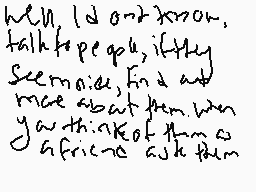 well, I dont know,
talk to people, if they
seem nice, find out
more about them. when
you think of them as
a friend ask them